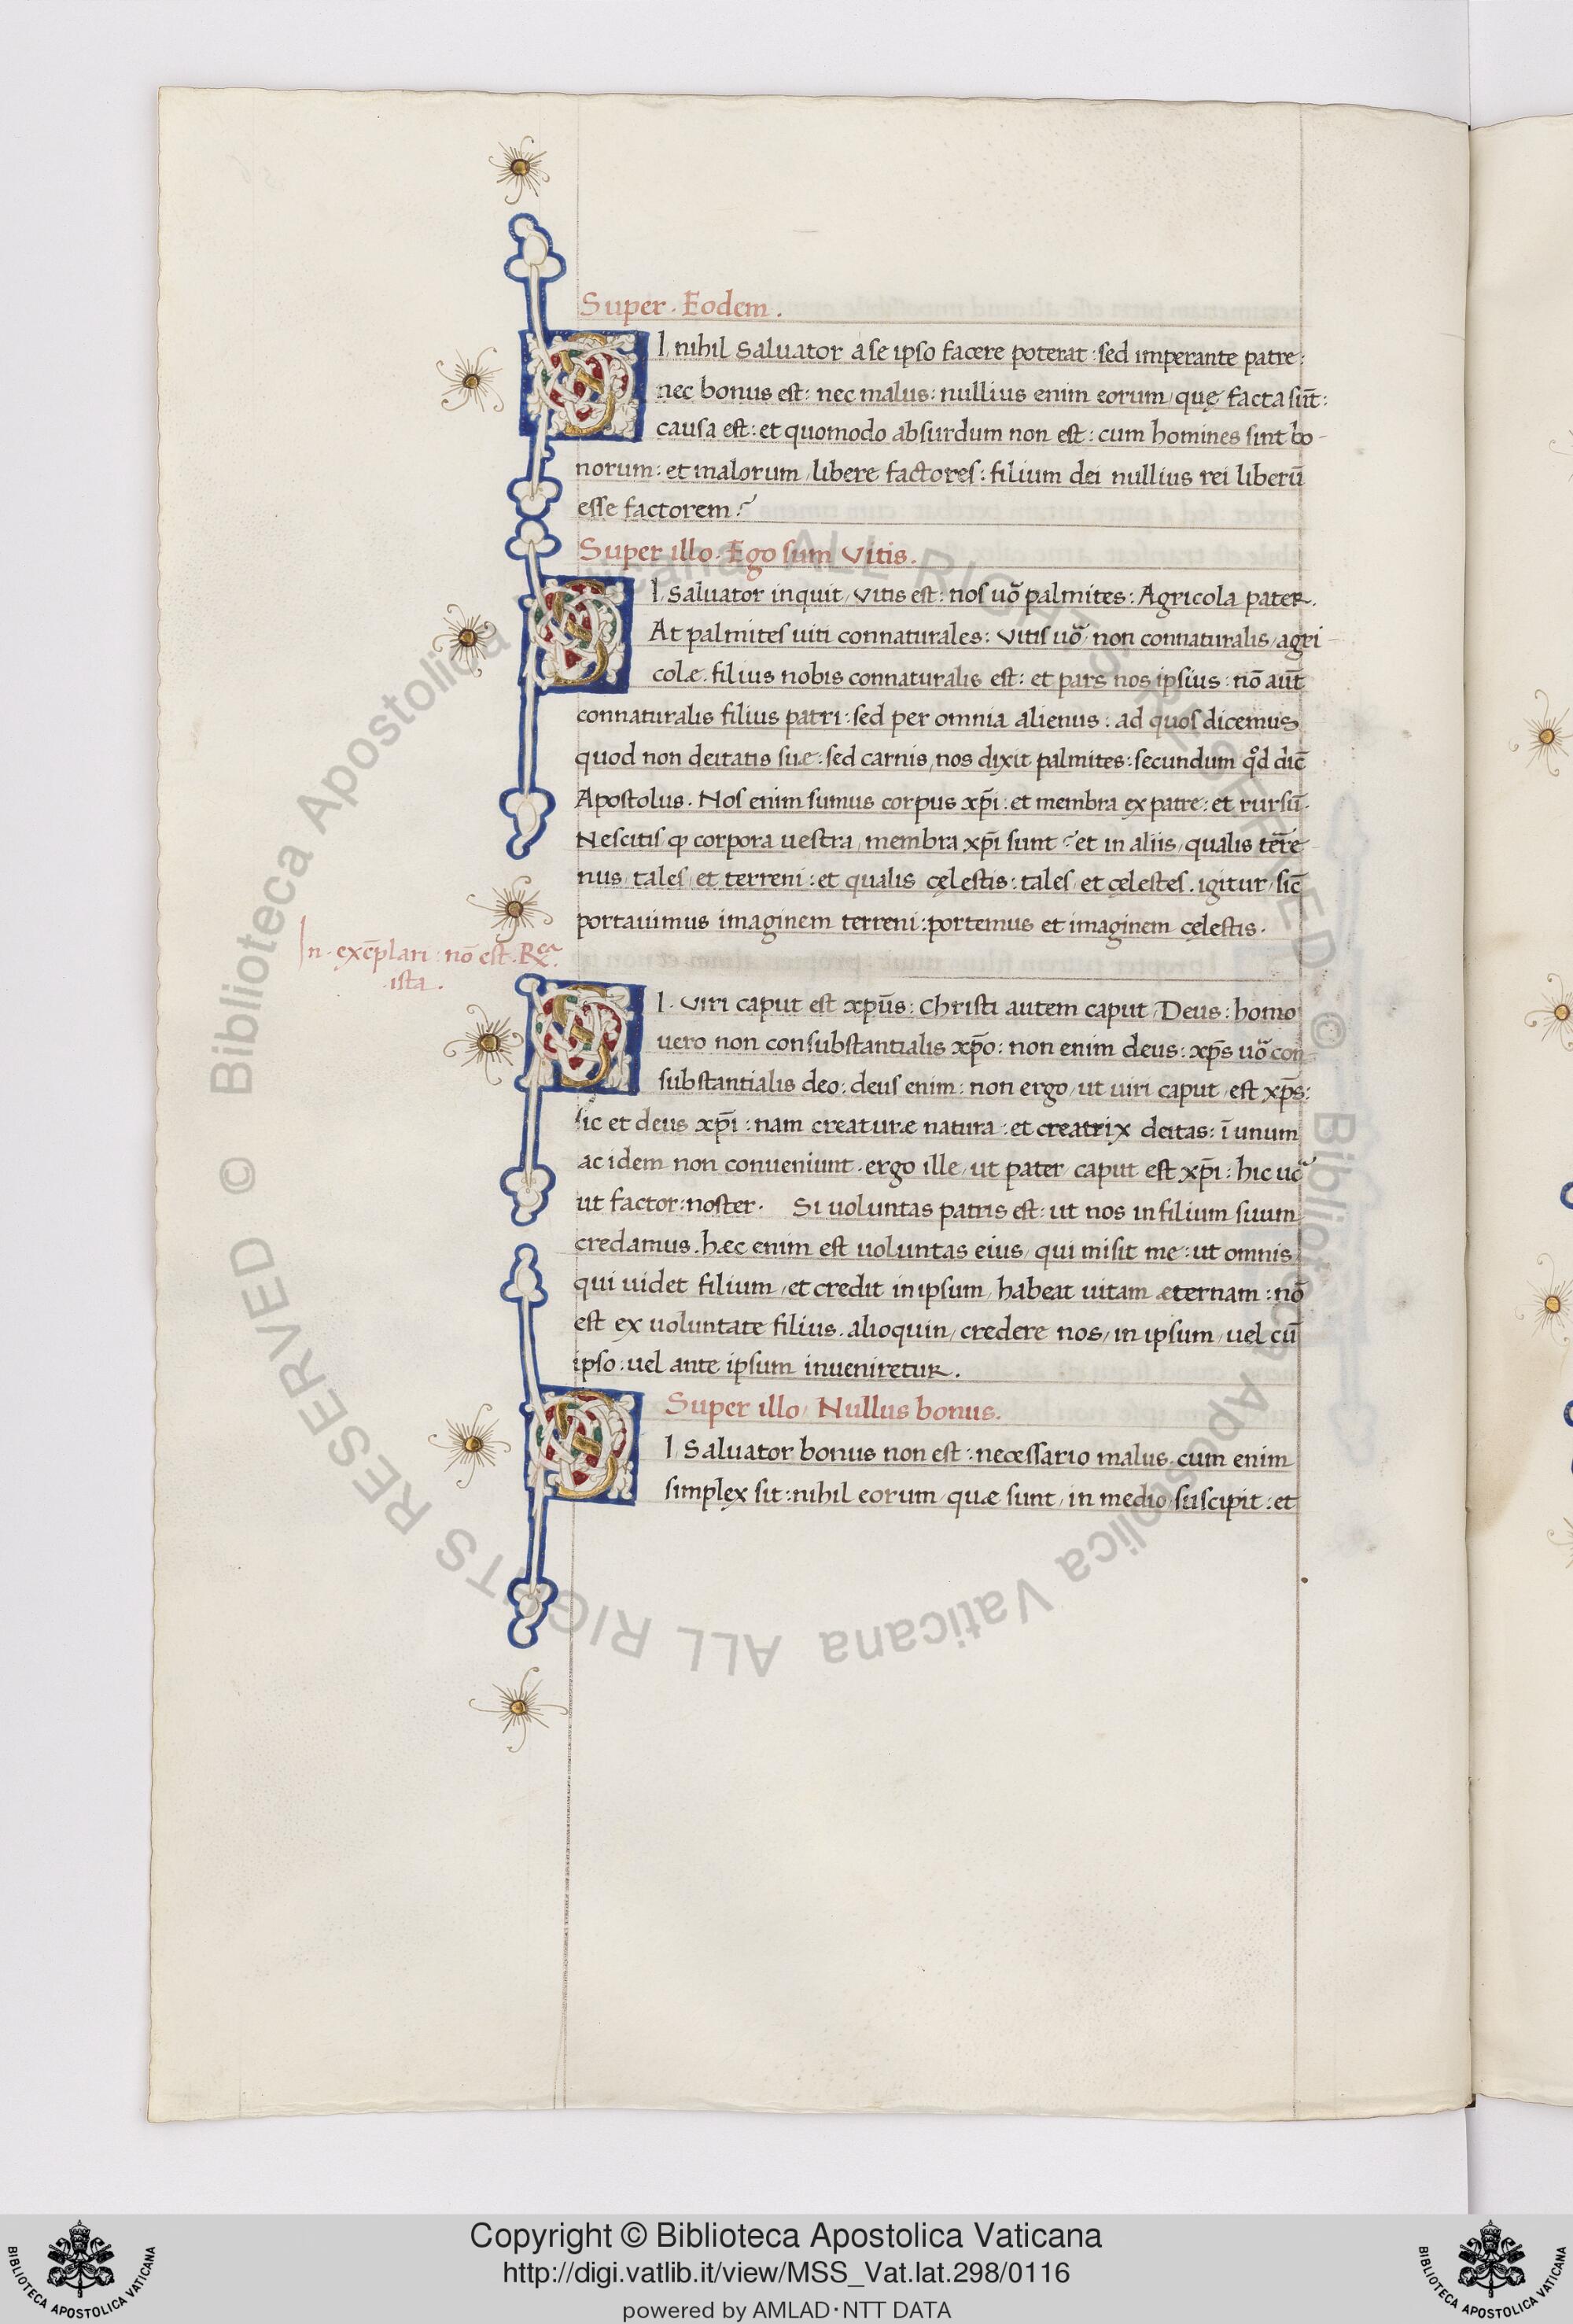 Super · Eodem .
SI, nihil Saluator a se ipso facere poterat : sed imperante patre :
nec bonus est : nec malus : nullius enim eorum, quę facta sūt :
causa est : et quomodo absurdum non est : cum homines sint bo -
norum : et malorum, libere factores : filium dei nullius rei liberū
esse factorem ?
Super illo · Ego sum Vitis .
SI, Saluator inquit, Vitis est : nos uo᷈ palmites : Agricola pater .
At palmites uiti connaturales : Vitis uo᷈ non connaturalis, agri -
colæ . filius nobis connaturalis est : et pars nos ipsius : nō aūt
connaturalis filius patri : sed per omnia alienus : ad quos dicemus
quod non deitatis suæ : sed carnis, nos dixit palmites : secundum qd̊ dic̄
Apostolus . Nos enim sumus corpus xp̄i : et membra ex patre : et rursū .
Nescitis ꝙ corpora uestra, membra xp̄i sunt ? et in aliis, qualis terre᷈
nus, tales, et terreni : et qualis cęlestis : tales, et cęlestes . igitur, sic̄
portauimus imaginem terreni : portemus et imaginem cęlestis .
In · exēplari : nō est . Rca
· ista .
SI · Viri caput est xpūs : Christi autem caput, Deus : homo
uero non consubstantialis xp̄o : non enim deus : xp̄s uo᷈ con
substantialis deo : deus enim : non ergo, ut uiri caput, est xp̄s :
sic et deus xp̄i : nam creaturæ natura : et creatrix deitas : ī unum
ac idem non conueniunt · ergo ille, ut pater, caput est xp̄i : hic uo᷈
ut factor : noster . Si uoluntas patris est : ut nos in filium suum
credamus . hæc enim est uoluntas eius, qui misit me : ut omnis,
qui uidet filium, et credit in ipsum, habeat uitam æternam : nō
est ex uoluntate filius . alioquin, credere nos, in ipsum, uel cū
ipso : uel ante ipsum inueniretur .
Super illo, Nullus bonus .
SI, Saluator bonus non est : necessario malus . cum enim
simplex sit : nihil eorum, quæ sunt, in medio suscipit : et
© Biblioteca Apostolica Vaticana ALL RIGHTS RESERVED
© Biblioteca Apostolica Vaticana ALL RIGHTS RESERVED
Copyright © Biblioteca Apostolica Vaticana
http://digi.vatlib.it/view/MSS_Vat.lat.298/0116
powered by AMLAD·NTT DATA
BIBLIOTECA APOSTOLICA VATICANA
BIBLIOTECA APOSTOLICA VATICANA